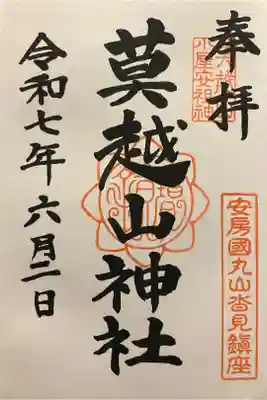 奉拝
安房國丸山沓見鎮座
莫越山神社
令和七年六月二日